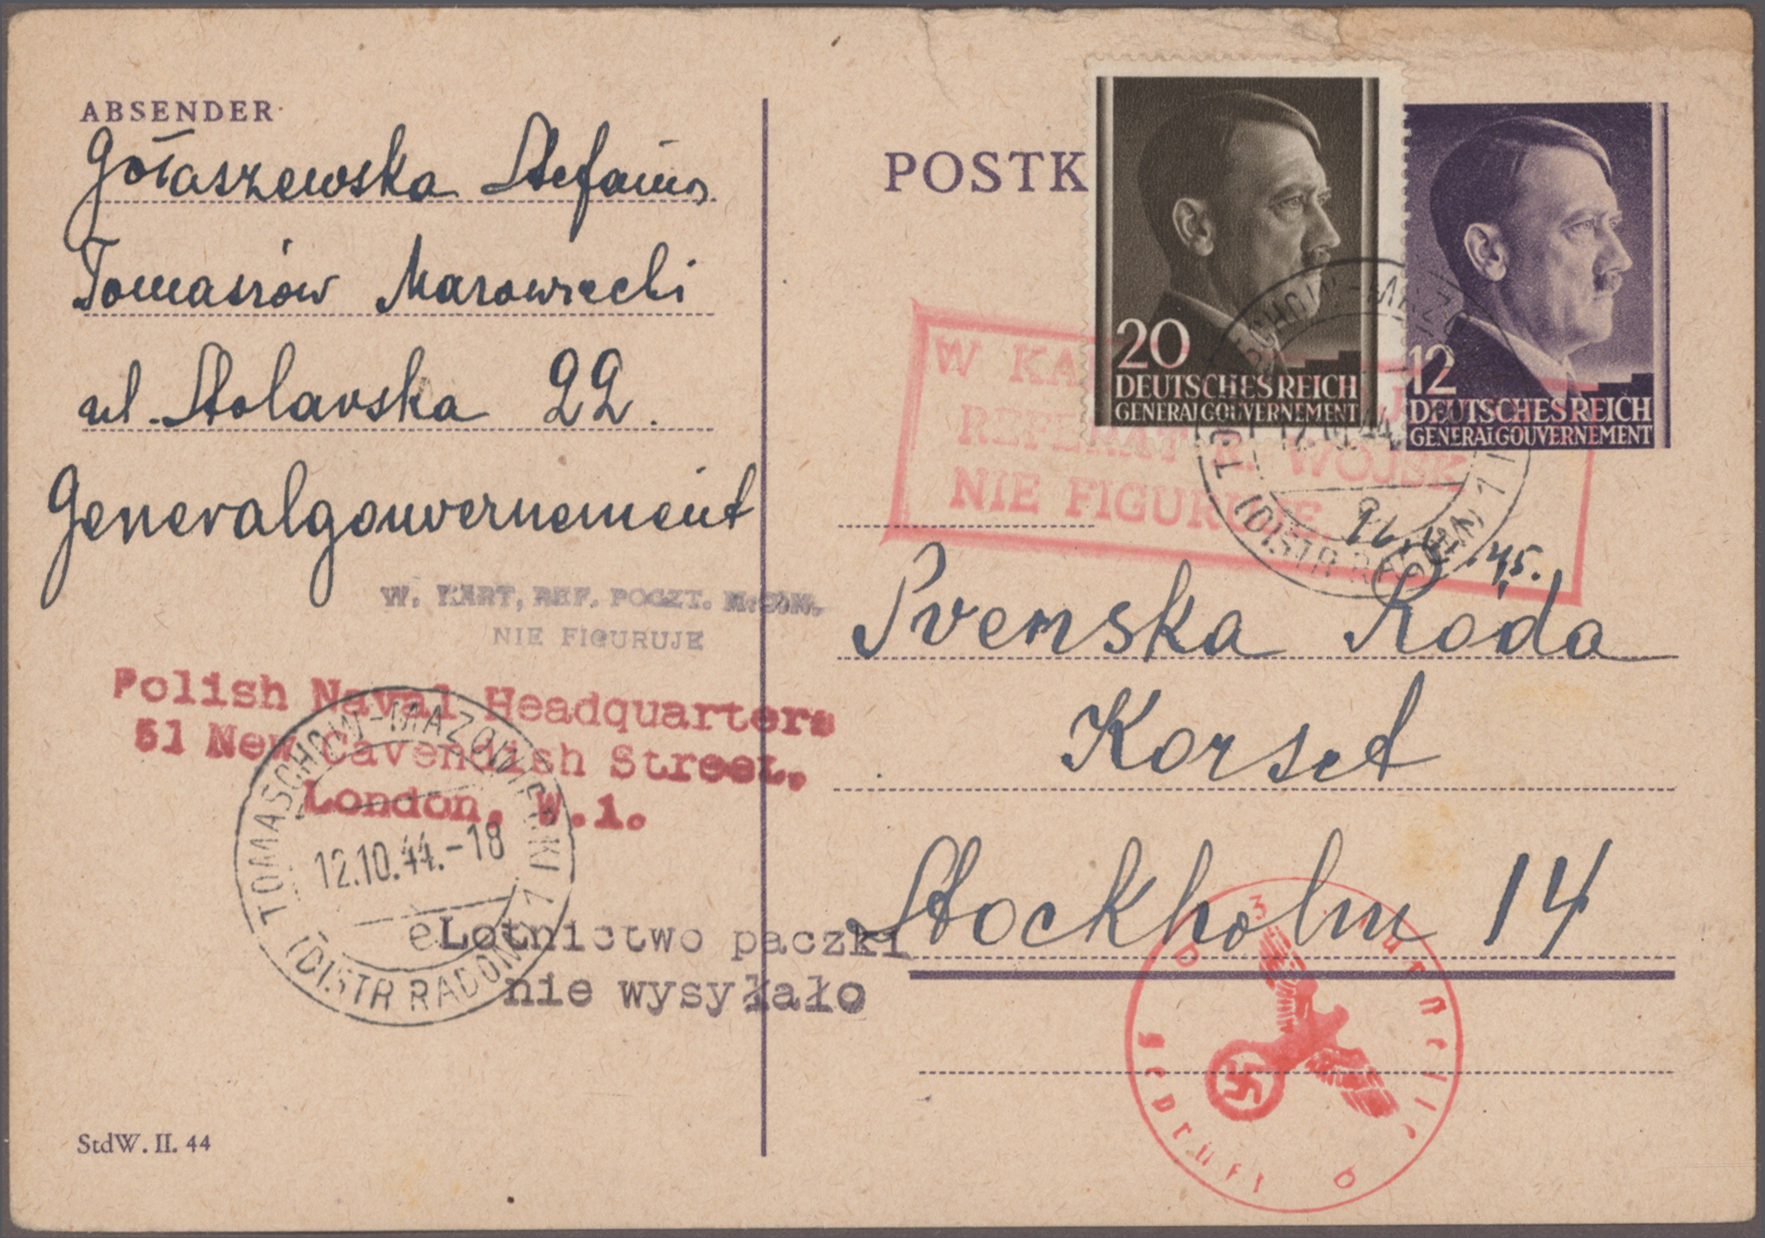 ABSENDER
Gołaszewska Stefania
Tomaszów Mazowiecki
ul. Stolarska 22.
Generalgouvernement
W. KART, REF. POCZT.
NIE FIGURUJE
Polish Naval Headquarters
51 New Cavendish Street,
London, W.1.
TOMASCHOW-MAZOWIECKI 1
12.10.44.-18
e
(DISTR RADOM)
Lotnictwo paczki
nie wysyłało
StdW. II. 44
POSTK
20
DEUTSCHES REICH
GENERALGOUVERNEMENT
12
DEUTSCHES REICH
GENERALGOUVERNEMENT
W KA
REFERAT R. WOJSK
NIE FIGURUJE
(DISTR RADOM) 1
45.
Svenska Röda
Korset
Stockholm 14
geprüft
b